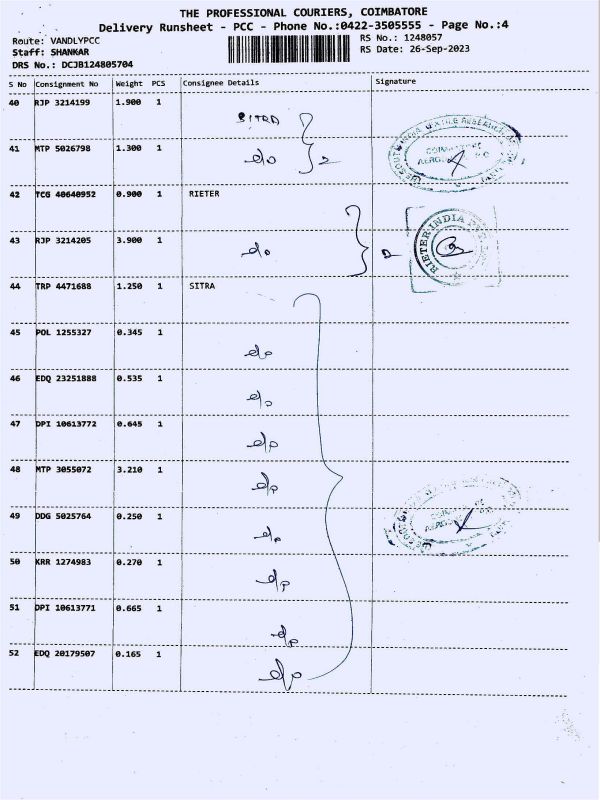 THE PROFESSIONAL COURIERS, COIMBATORE
Delivery Runsheet - PCC - Phone No.:0422-3505555 - Page No.:4
Route: VANDLYPCC RS No.: 1248057
Staff: SHANKAR RS Date: 26-Sep-2023
DRS No.: DCJB124805704
S No Consignment No Weight PCS Consignee Details Signature
40 RJP 3214199 1.900 1 SITRA
41 MTP 5026798 1.300 1 do 2
42 TCG 40640952 0.900 1 RIETER
43 RJP 3214205 3.900 1 do
RIETER INDIA
44 TRP 4471688 1.250 1 SITRA
45 POL 1255327 0.345 1 do
46 EDQ 23251888 0.535 1 do
47 DPI 10613772 0.645 1 do
48 MTP 3055072 3.210 1 do
49 DDG 5025764 0.250 1 do
50 KRR 1274983 0.270 1 do
51 DPI 10613771 0.665 1 do
52 EDQ 20179507 0.165 1 do